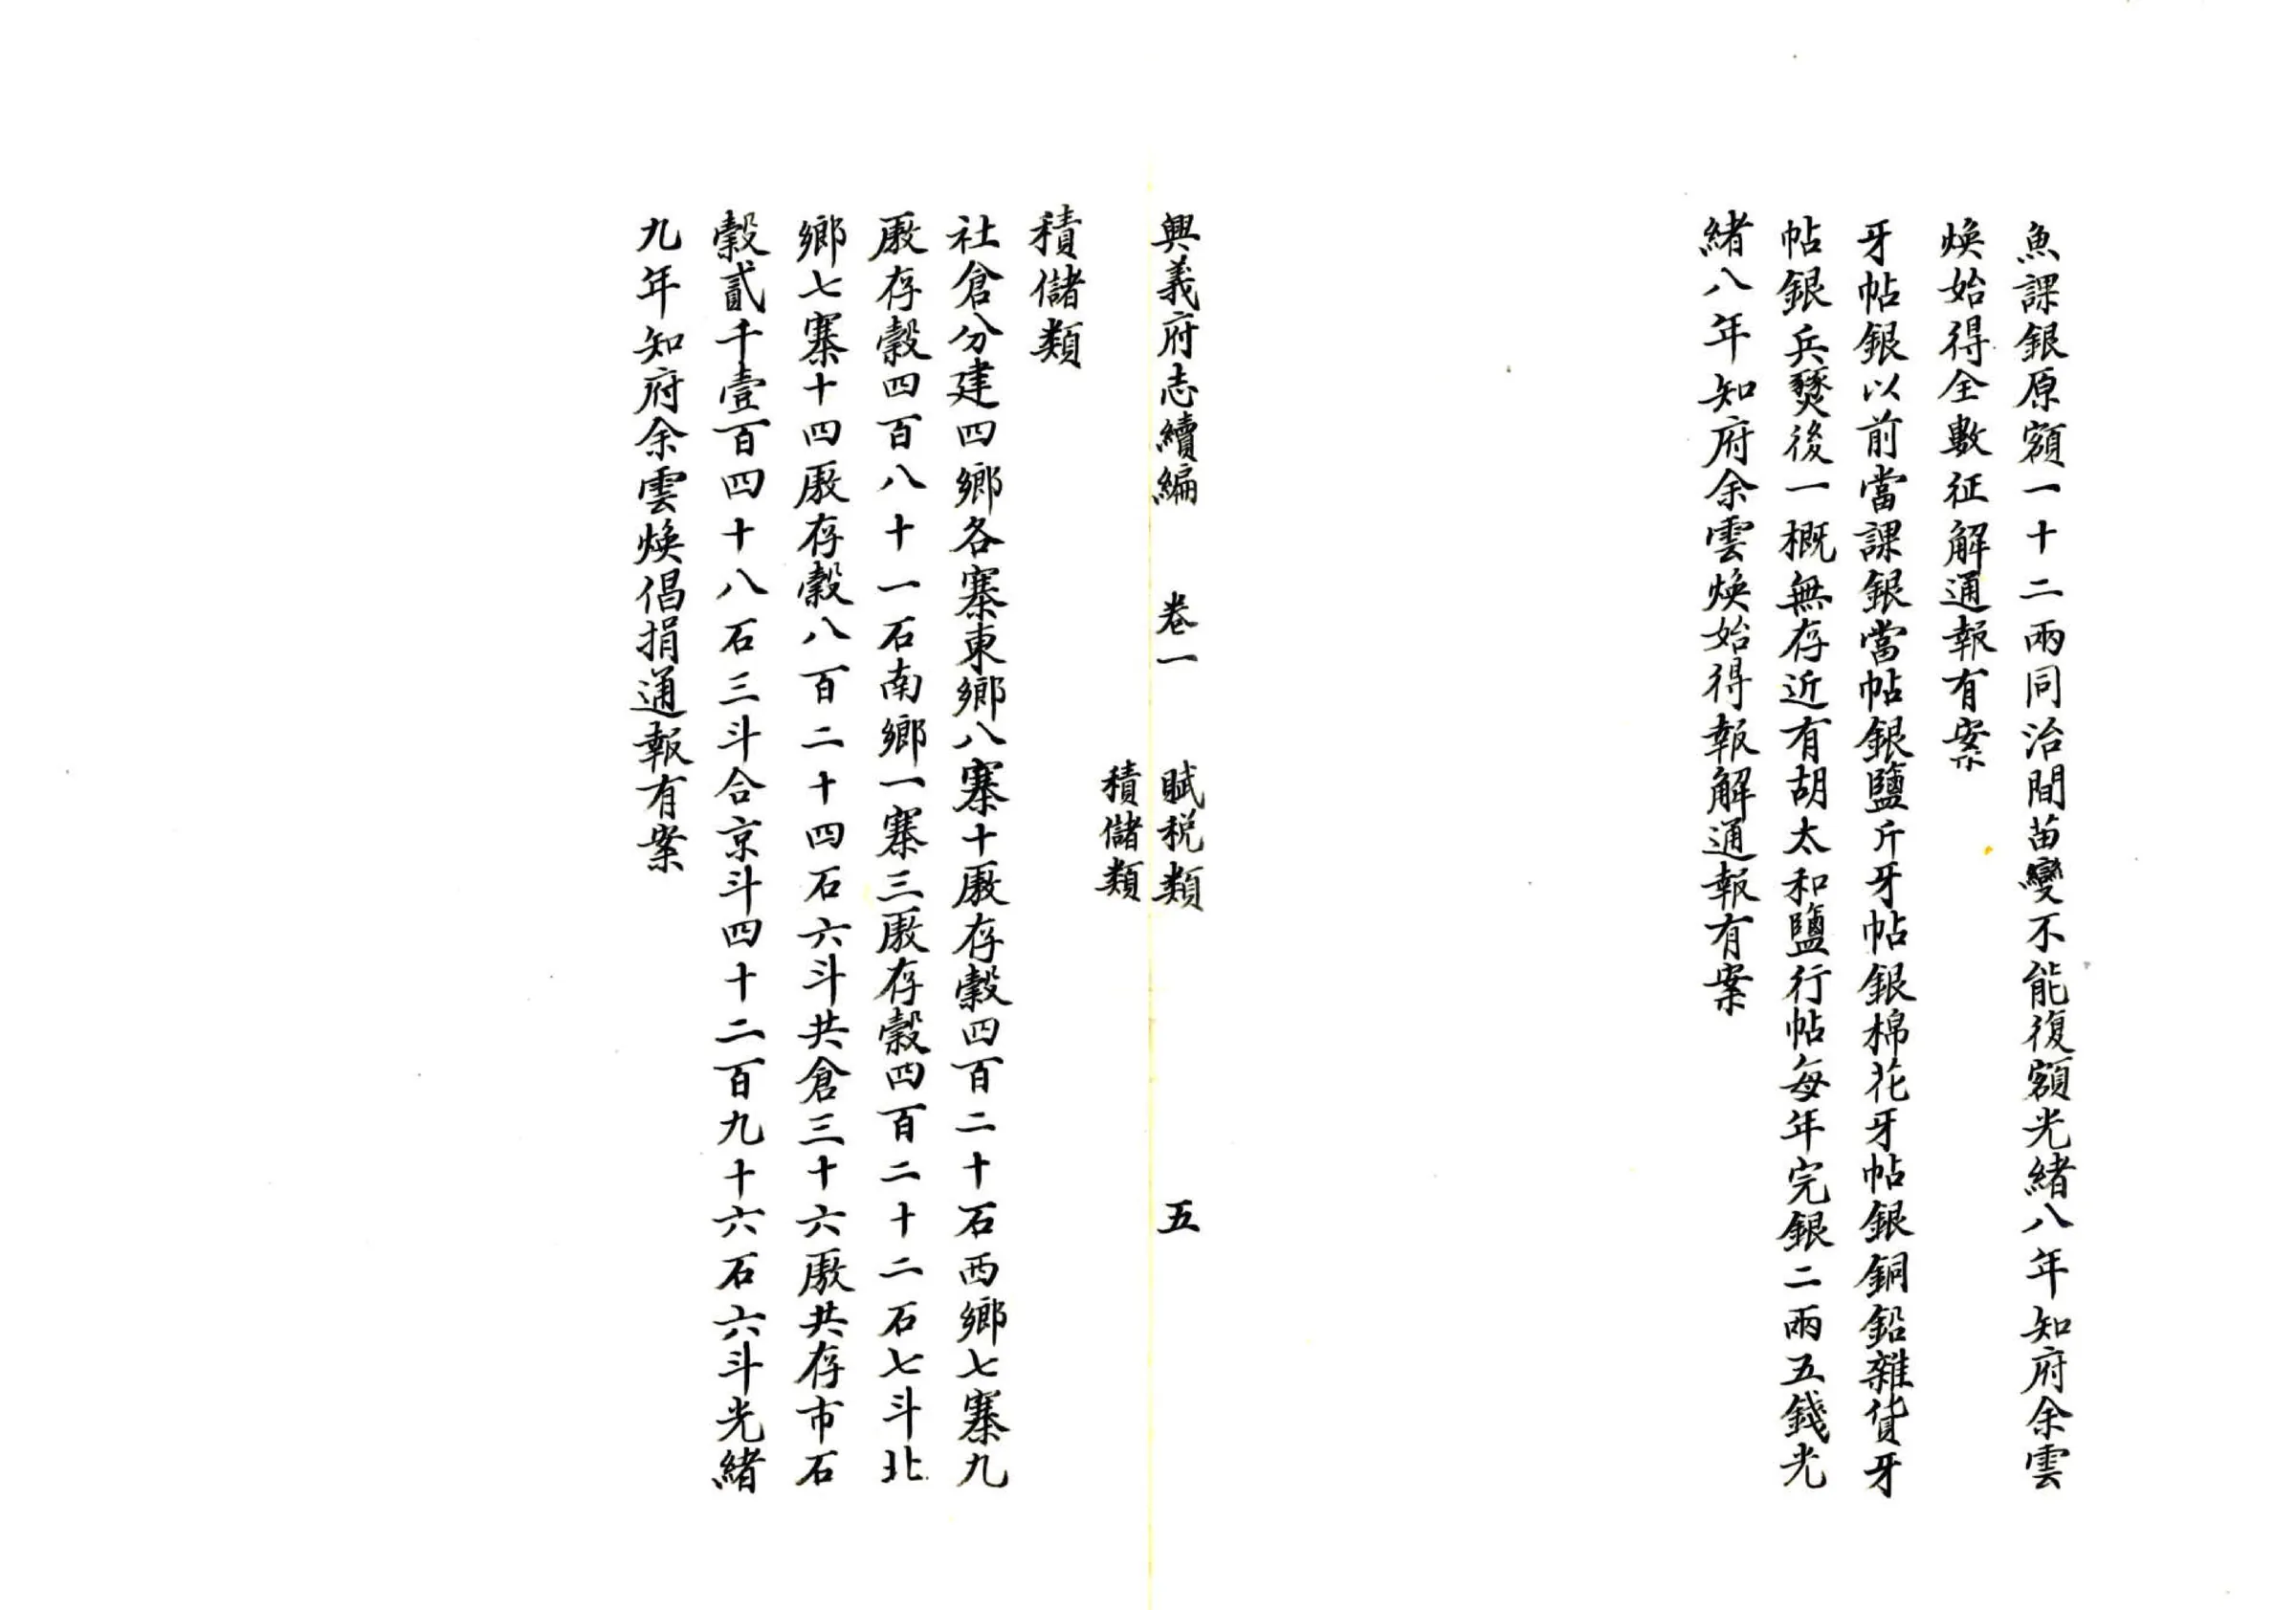 魚課銀原額一十二兩同治間苗變不能復額光緒八年知府余雲
煥始得全數征解通報有案
牙帖銀以前當課銀當帖銀鹽斤牙帖銀棉花牙帖銀銅鉛雜貨牙
帖銀兵燹後一概無存近有胡太和鹽行帖每年完銀二兩五錢光
緒八年知府余雲煥始得報解通報有案
興義府志續編 卷一 賦稅類 五
積儲類
積儲類
社倉分建四鄉各寨東鄉八寨十厫存穀四百二十石西鄉七寨九
厫存穀四百八十一石南鄉一寨三厫存穀四百二十二石七斗北
鄉七寨十四厫存穀八百二十四石六斗共倉三十六厫共存市石
穀貳千壹百四十八石三斗合京斗四十二百九十六石六斗光緒
九年知府余雲煥倡捐通報有案